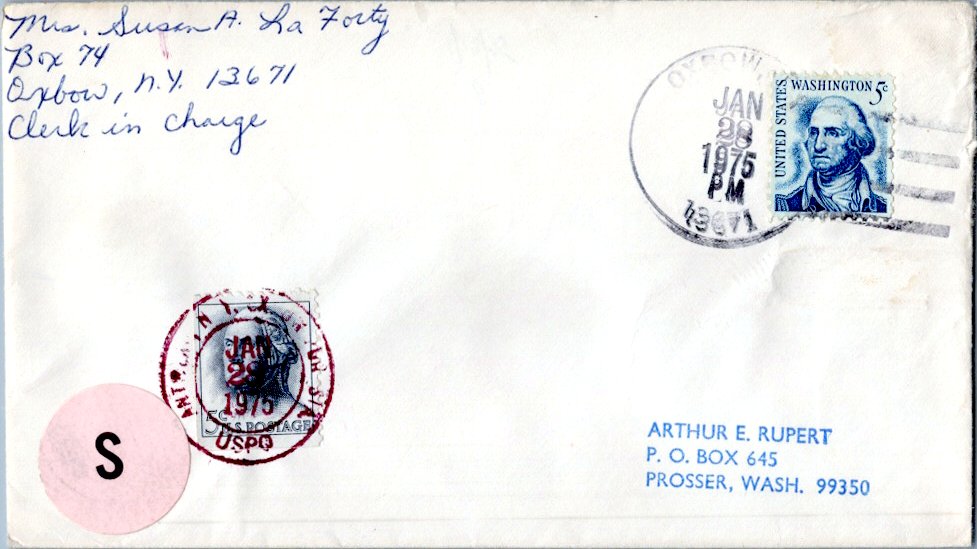 Mrs. Susan A. La Forty
Box 74
Oxbow, N.Y. 13671
Clerk in charge
OXBOW,
JAN
28
1975
PM
13671
UNITED STATES
WASHINGTON 5c
JAN
28
1975
USPO
5c U.S. POSTAGE
S
ARTHUR E. RUPERT
P. O. BOX 645
PROSSER, WASH. 99350